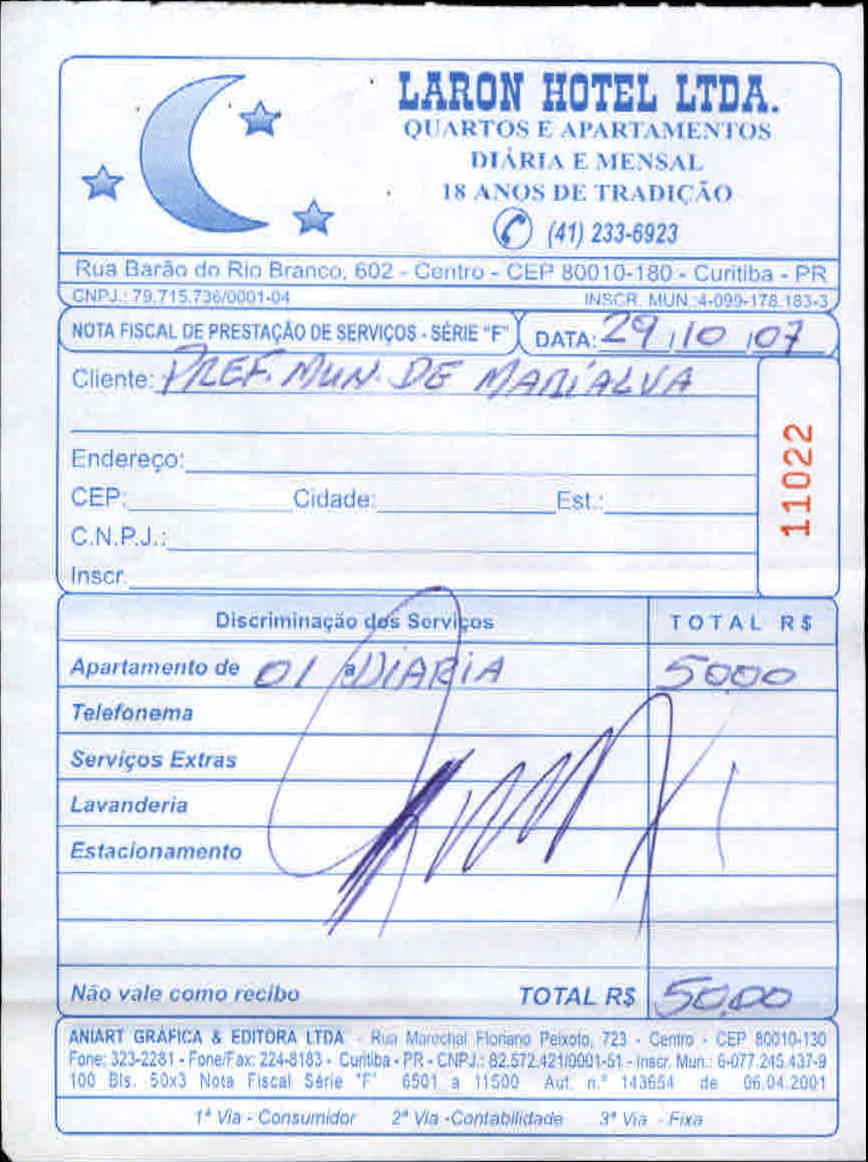 LARON HOTEL LTDA.
QUARTOS E APARTAMENTOS
DIÁRIA E MENSAL
18 ANOS DE TRADIÇÃO
(41) 233-6923
Rua Barão do Rio Branco, 602 - Centro - CEP 80010-180 - Curitiba - PR
CNPJ.: 79.715.736/0001-04 INSCR. MUN.:4-099-178.183-3
NOTA FISCAL DE PRESTAÇÃO DE SERVIÇOS - SÉRIE "F" DATA: 29/10/07
Cliente: PREF. MUN. DE MARIALVA
11022
Endereço:
CEP: Cidade: Est.:
C.N.P.J.:
Inscr.
Discriminação dos Serviços TOTAL R$
Apartamento de 01 a DIARIA 5000
Telefonema
Serviços Extras
Lavanderia
Estacionamento
Não vale como recibo TOTAL R$ 50,00
ANIART GRÁFICA & EDITORA LTDA - Rua Marechal Floriano Peixoto, 723 - Centro - CEP 80010-130
Fone: 323-2281 - Fone/Fax: 224-8183 - Curitiba - PR - CNPJ.: 82.572.421/0001-51 - Inscr. Mun.: 6-077.245.437-9
100 Bls. 50x3 Nota Fiscal Série "F" 6501 a 11500 Aut. n.º 143654 de 06.04.2001
1ª Via - Consumidor 2ª Via -Contabilidade 3ª Via - Fixa